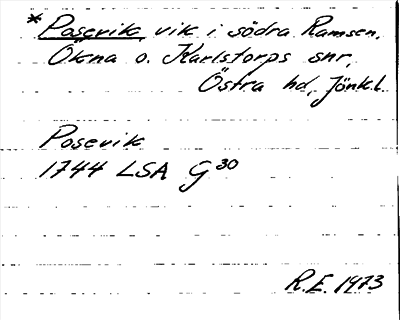 * Posevik, vik i södra Ramsen,
Ökna o. Karlstorps snr,
Östra hd, Jönk.l.
Posevik
1744 LSA G 30
R.E. 1973